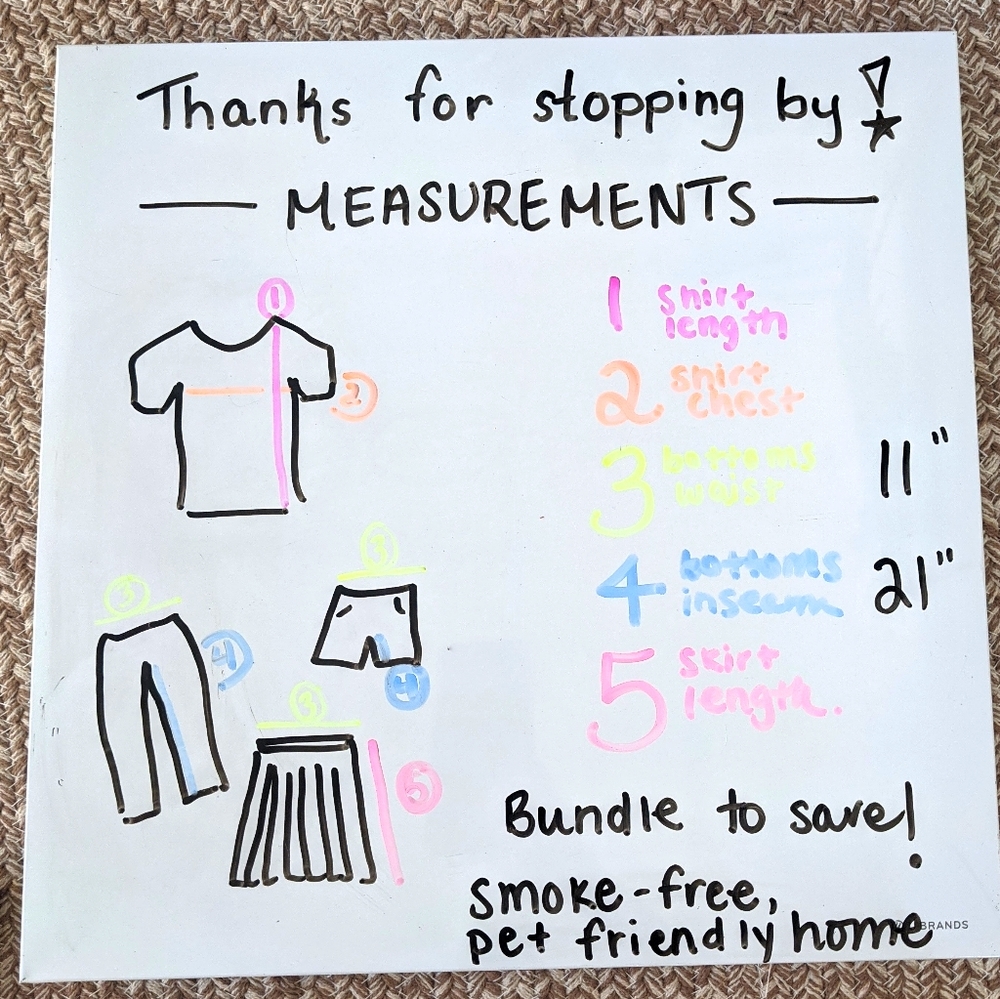 Thanks for stopping by!
MEASUREMENTS
1
2
1 shirt
length
2 shirt
chest
3 bottoms
waist 11"
4 bottoms
inseam 21"
5 skirt
length.
3
3
4
4
3
5
Bundle to save!
smoke-free,
pet friendly home
BRANDS